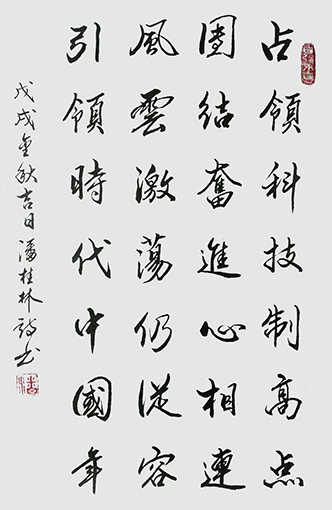 占領科技制高点
團结奮進心相連
風雲激蕩仍從容
引領時代中國年
戊戌金秋吉日潘桂林詩书